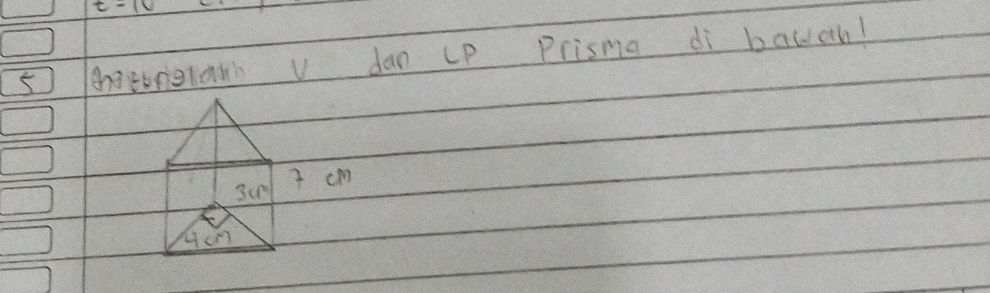 t = 10
5 V dan LP Prisma di bawah!
3cm 7 cm
4cm